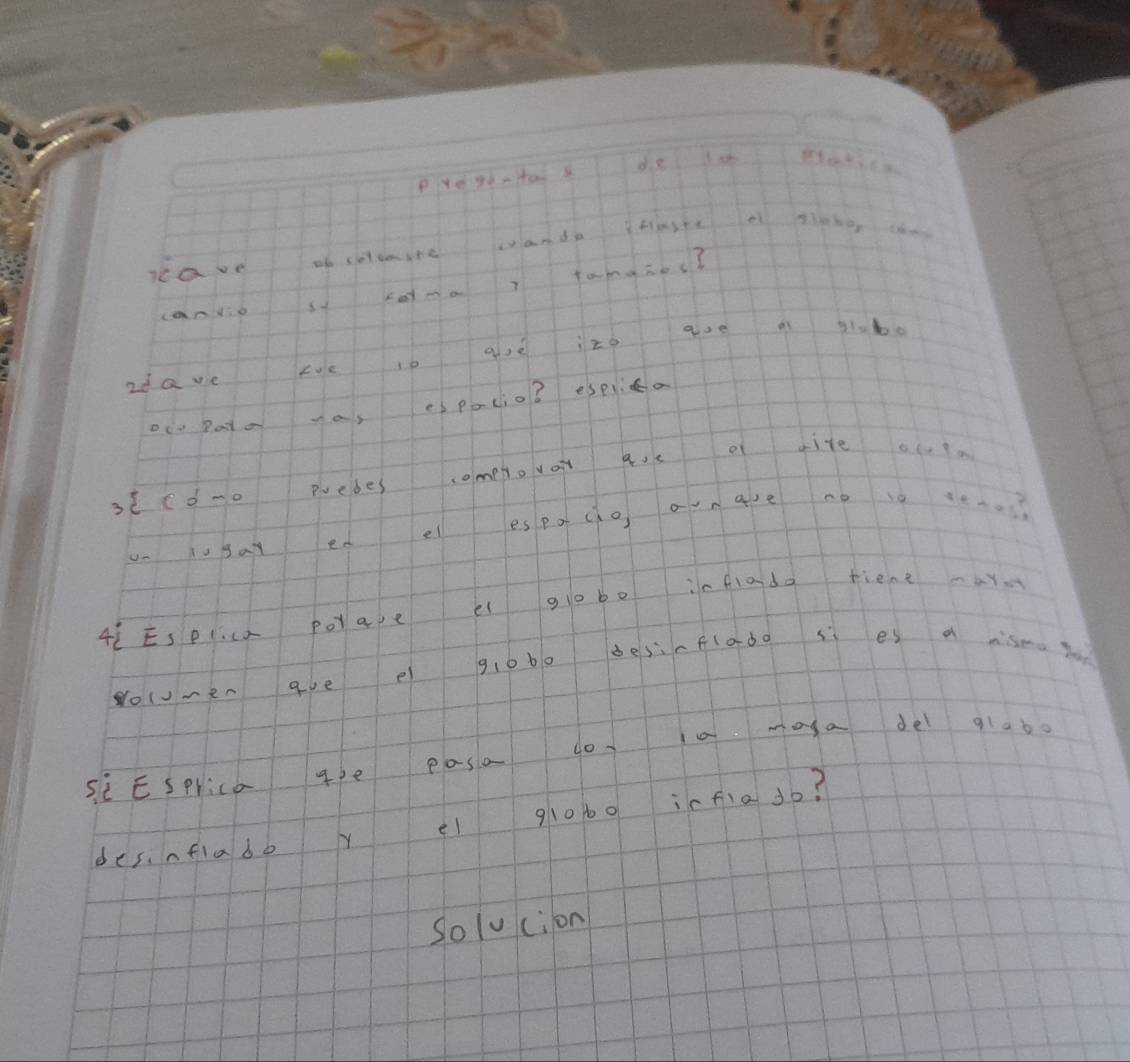 Preguntas de la Platica
1¿Que observaste cuando iflaste el globo, como
canvio su forma y tamaños?
2¿Que fue lo qué izo que el globo
ocupara mas espacio? esplica
3¿Cómo puedes comprovar que el aire ocupa
un lugar en el espacio, aunque no lo vemos?
4¿Esplica porque el globo inflado tiene mayor
volumen que el globo desinflado si es el misma
5¿Esplica que pasa con la masa del globo
desinflado y el globo inflado?
Solucion